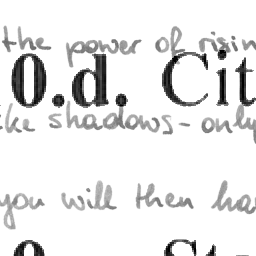 the power of risin
0.d. Cit
ke shadows - only
you will then ha